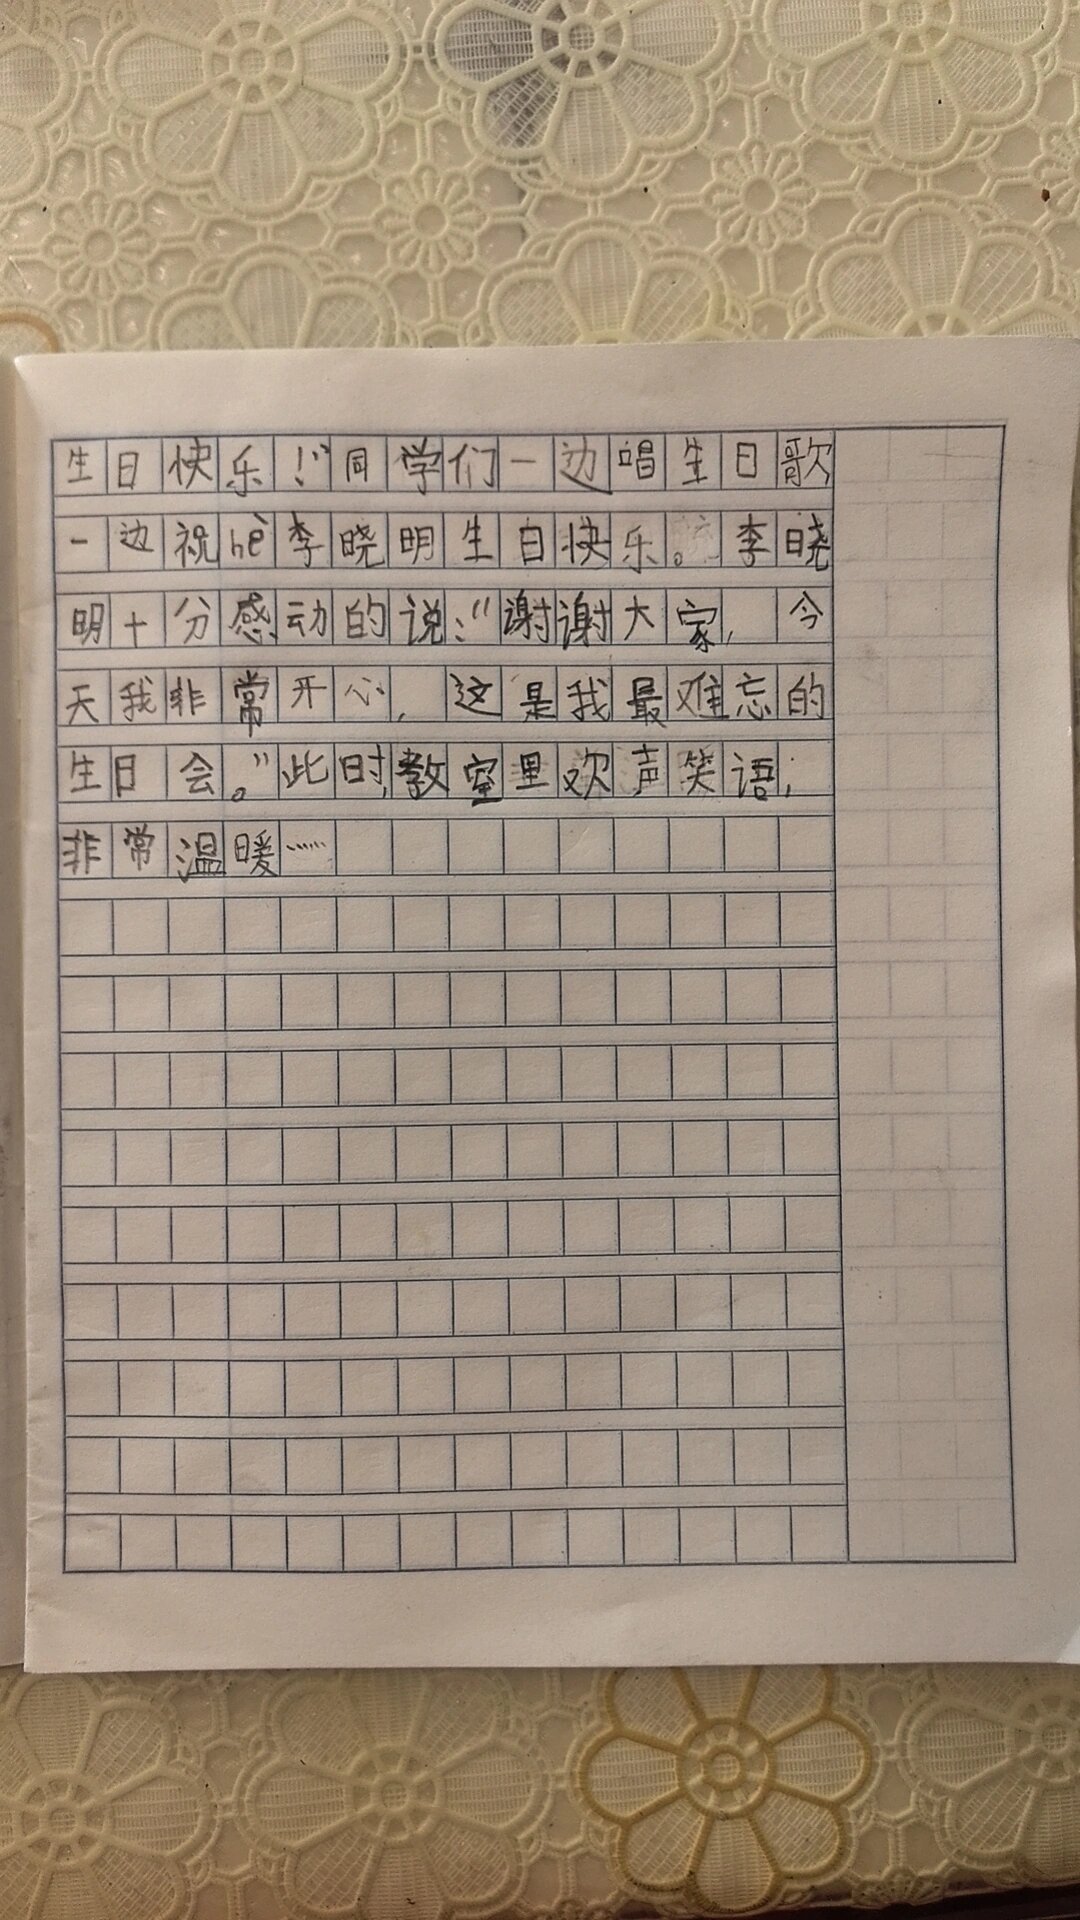 生日快乐！”同学们一边唱生日歌
一边祝hè李晓明生日快乐。李晓
明十分感动的说：“谢谢大家，今
天我非常开心，这是我最难忘的
生日会。”此时，教室里欢声笑语，
非常温暖……